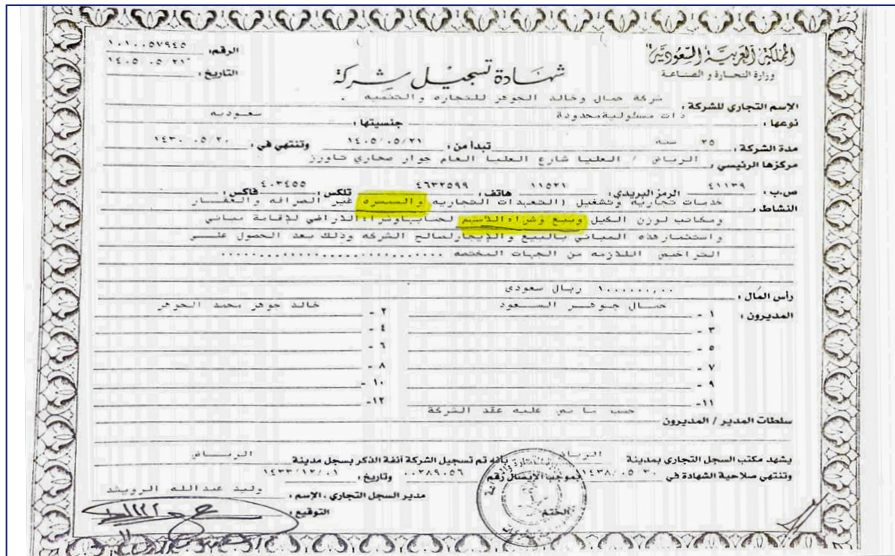 المملكة العربية السعودية
وزارة التجارة و الصناعة
شهادة تسجيل شركة
الرقم: ١٠١٠٠٥٧٩٤٥
التاريخ: ١٤٠٥/٠٥/٢١
الإسم التجاري للشركة: شركة جمال وخالد الجوهر للتجاره والتنميه .
نوعها: ذات مسئولية محدودة جنسيتها: سعوديه
مدة الشركة: ٢٥ سنه تبدأ من: ١٤٠٥/٠٥/٢١ وتنتهي في: ١٤٣٠/٠٥/٢٠
مركزها الرئيسي: الرياض / العليا شارع العليا العام جوار صحاري تاورز
ص.ب: ٤١١٣٩ الرمز البريدي: ١١٥٢١ هاتف: ٤٦٣٢٥٩٩ تلكس: فاكس: ٤٠٣٤٥٥
النشاط: خدمات تجاريه وتشغيل (التعهدات التجاريه والسمسره غير الصرافه والعقار
ومكاتب لوزن الكيل وبيع وشراء الأسهم لحسابها وشراء الأراضي لإقامة مباني
واستثمار هذه المباني بالبيع والإيجار لصالح الشركه وذلك بعد الحصول على
التراخيص اللازمه من الجهات المختصه
رأس المال: ١٠٠٠٠٠٠,٠٠ ريال سعودي
المديرون: ١ - جمال جوهر السعود ٢ - خالد جوهر محمد الجوهر
٣ - ٤ -
٥ - ٦ -
٧ - ٨ -
٩ - ١٠ -
١١- ١٢-
سلطات المدير / المديرون: حسب ما نص عليه عقد الشركة
يشهد مكتب السجل التجاري بمدينة الرياض بأنه تم تسجيل الشركة آنفة الذكر بسجل مدينة الرياض
وتنتهي صلاحية الشهادة في ١٤٣٨/٠٥/٢٠ بموجب الإيصال رقم ٠٠٣٨٩٠٥٦ وتاريخ: ١٤٣٣/١٢/٠١
مدير السجل التجاري، الإسم: وليد عبدالله الرويشد
الختم التوقيع: